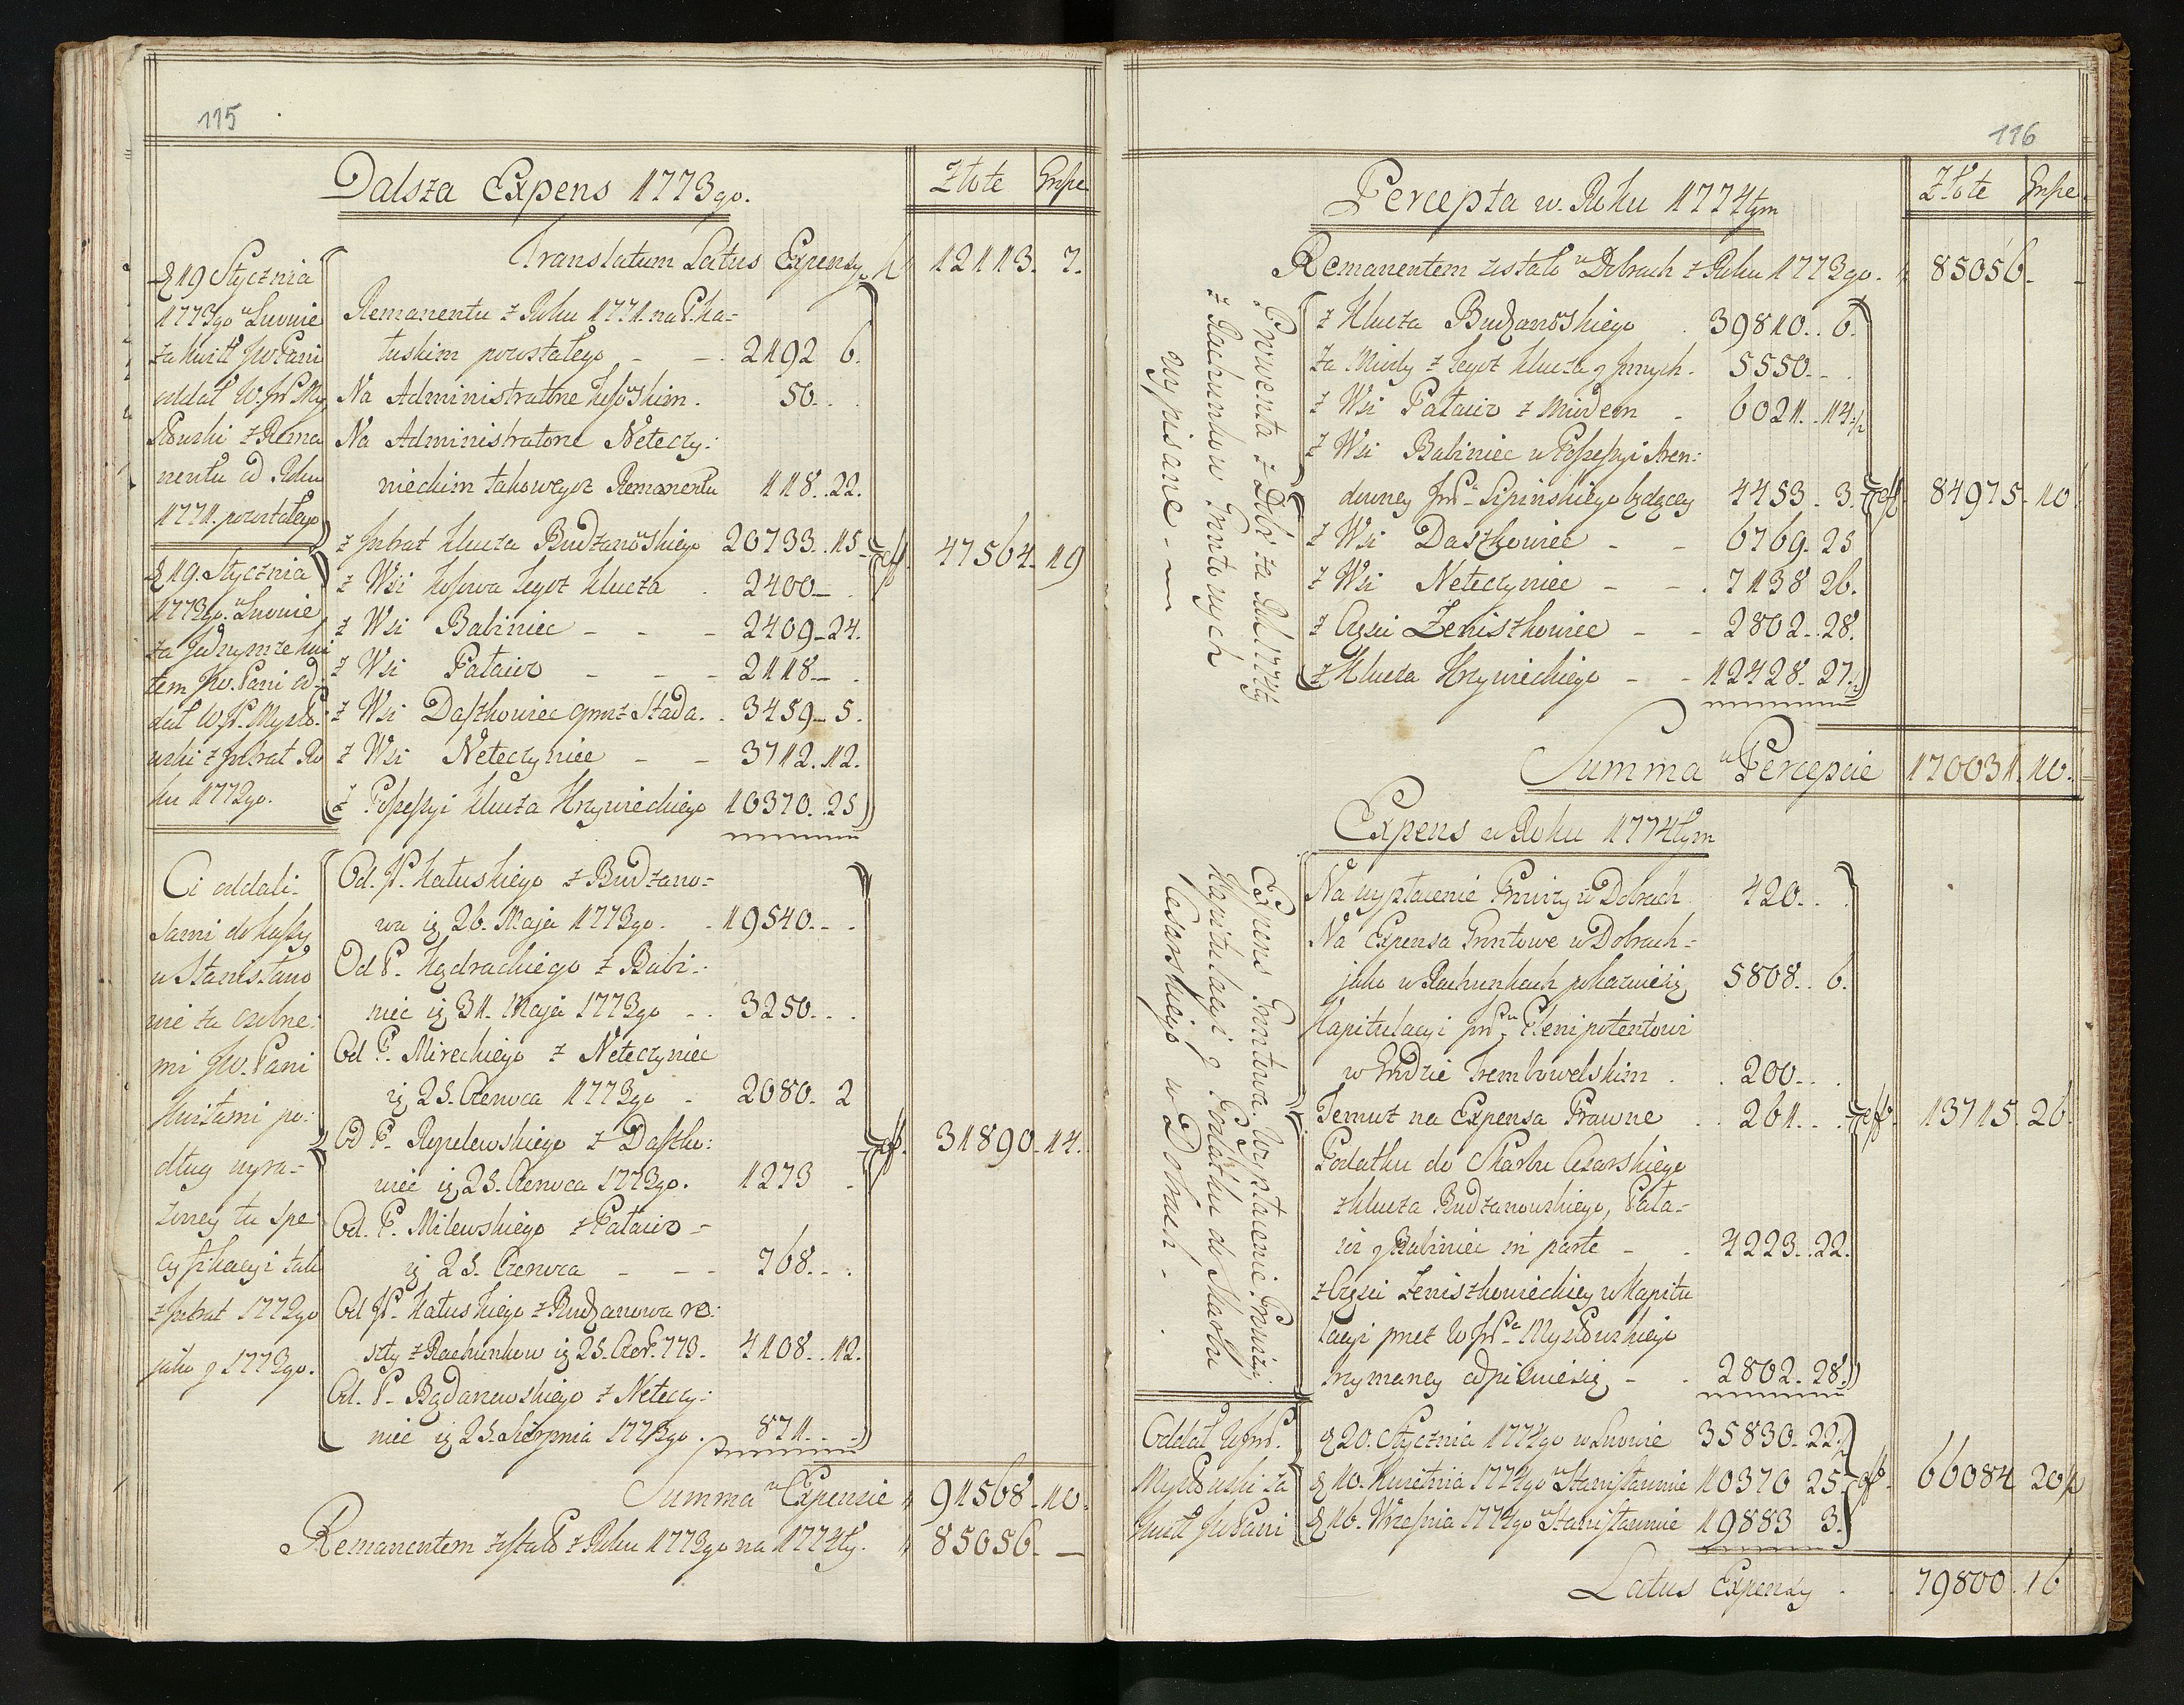 115
Dalsza Expens 1773go.
Złote Grosze
Translatum Latus Expensy 12113. 7.
d 19 Stycznia
1773go w Lwowie
za kwitt JW Pani
oddał W. JP. My
słowski z Rema
nentu od Roku
1771. pozostałego
Remanentu z Roku 1771. na P. Ka-
łuskim pozostałego - - 2492 6.
Na Administratorze Kossowskim. 50. .
Na Administratorze Neteczy:
nieckim takowegoż Remanentu 118. 22.
d 19. Stycznia
1773go. w Lwowie
za Jednymże kwi
tem JW. Pani od-
dał W JP. Mysło-
wski z Intrat Ro
ku 1772go.
z Intrat klucza Budzanowskiego 20733. 15
z Wsi Kossowa tegoż klucza . 2400 - .
z Wsi Babiniec - - - 2409 - 24.
z Wsi Patawic - - - 2118 - .
z Wsi Daszkowiec oprócz Stada. . 3459 - 5.
z Wsi Neteczyniec - - 3712. 12.
z Possessyi klucza Krzywieckiego 10370. 25
eff. 47564. 19
Ci oddali.
sami do kassy
w Stanisławo
wie za osobne:
mi JW. Pani
kwitami po:
dług wyra-
żoney tu Spe
cyfikacyi tak
z Intrat 1772go
jako y 1773go.
Od. P. Kałuskiego z Budzano-
wa ig 26. Maja 1773go. . 19540. . .
Od P. Kędrackiego z Babi-
niec ig 31. Maja 1773go - . 3250. . .
Od P. Mireckiego z Neteczyniec
ig 25. Czerwca 1773go - 2080. 2
Od P. Rypelewskiego z Daszko:
wiec ig 25. Czerwca 1773go. 1273 .
Od. P. Milewskiego z Patawic -
ig 25. Czerwca - - - 768. . .
Od P. Kałuskiego z Budzanowa re:
szty z Rachunkow ig 25. Czer. 773. 4108. . 12.
Od. P. Bogdanowskiego z Neteczy:
niec ig 25. Sierpnia 1773go. 871. . .
eff. 31890. 14.
Summa w Expensie 91568. 10.
Remanentem został z Roku 1773go na 1774ty. 85056. -
116
Percepta w Roku 1774tym
Złote Grosze
Remanentem zostało w Dobrach z Roku 1773go. 85056. -
Prowenta z Dobr za Rok 1774ty
z Rachunkow Gruntowych
wypisane - -
z Klucza Budzanowskiego . 39810. . 6.
za Miody z tegoż klucza y innych. 5550. - .
z Wsi Patawic z Miodem - 6021. . 14.½
z Wsi Babiniec w Possessyi Aren:
downey JP. Lipińskiego będącey 4453. 3.
z Wsi Daszkowiec - - 6769. 25
z Wsi Neteczyniec - - . 7138 26.
z Części Zeniszkowiec - - 2802. . 28.
z Klucza Krzywieckiego - - 12428. 27.½
eff. 84975. 10
Summa w Percepcie 170031. 10.
Expens w Roku 1774tym
Expens Gruntowa. Wypłacenie Prowizyi,
Kapitulacyi y Podatku do Skarbu
Cesarskiego w Dobrach - .
Na wypłacenie Prowizyi w Dobrach. 420. . .
Na Expensa Gruntowe w Dobrach -
jako w Rachunkach pokazuie się 5808. . 6.
Kapitulacyi JP. Plenipotentowi
w Grodzie Trembowelskim . . 200. . .
Temuż na Expensa Prawne . . 261. . .
Podatku do Skarbu Cesarskiego
z klucza Budzanowskiego, Pata-
wic y Babiniec in parte - . 4223. . 22.
z Części Zeniszkowieckiey w Kapitu
lacyi przez W JP. Mysłowskiego
trzymaney odpisuie się - . 2802. 28.
eff. 13715. 26
Oddał W JP.
Mysłowski za
kwitt JW Pani
d 20. Stycznia 1774go w Lwowie 35830. 22.½
d 10. Kwietnia 1774go w Stanisławowie 10370 25.
d 16. Wrzesnia 1774go w Stanisławowie 19883 3.
eff. 66084 20½
Latus Expensy . . 79800. 16